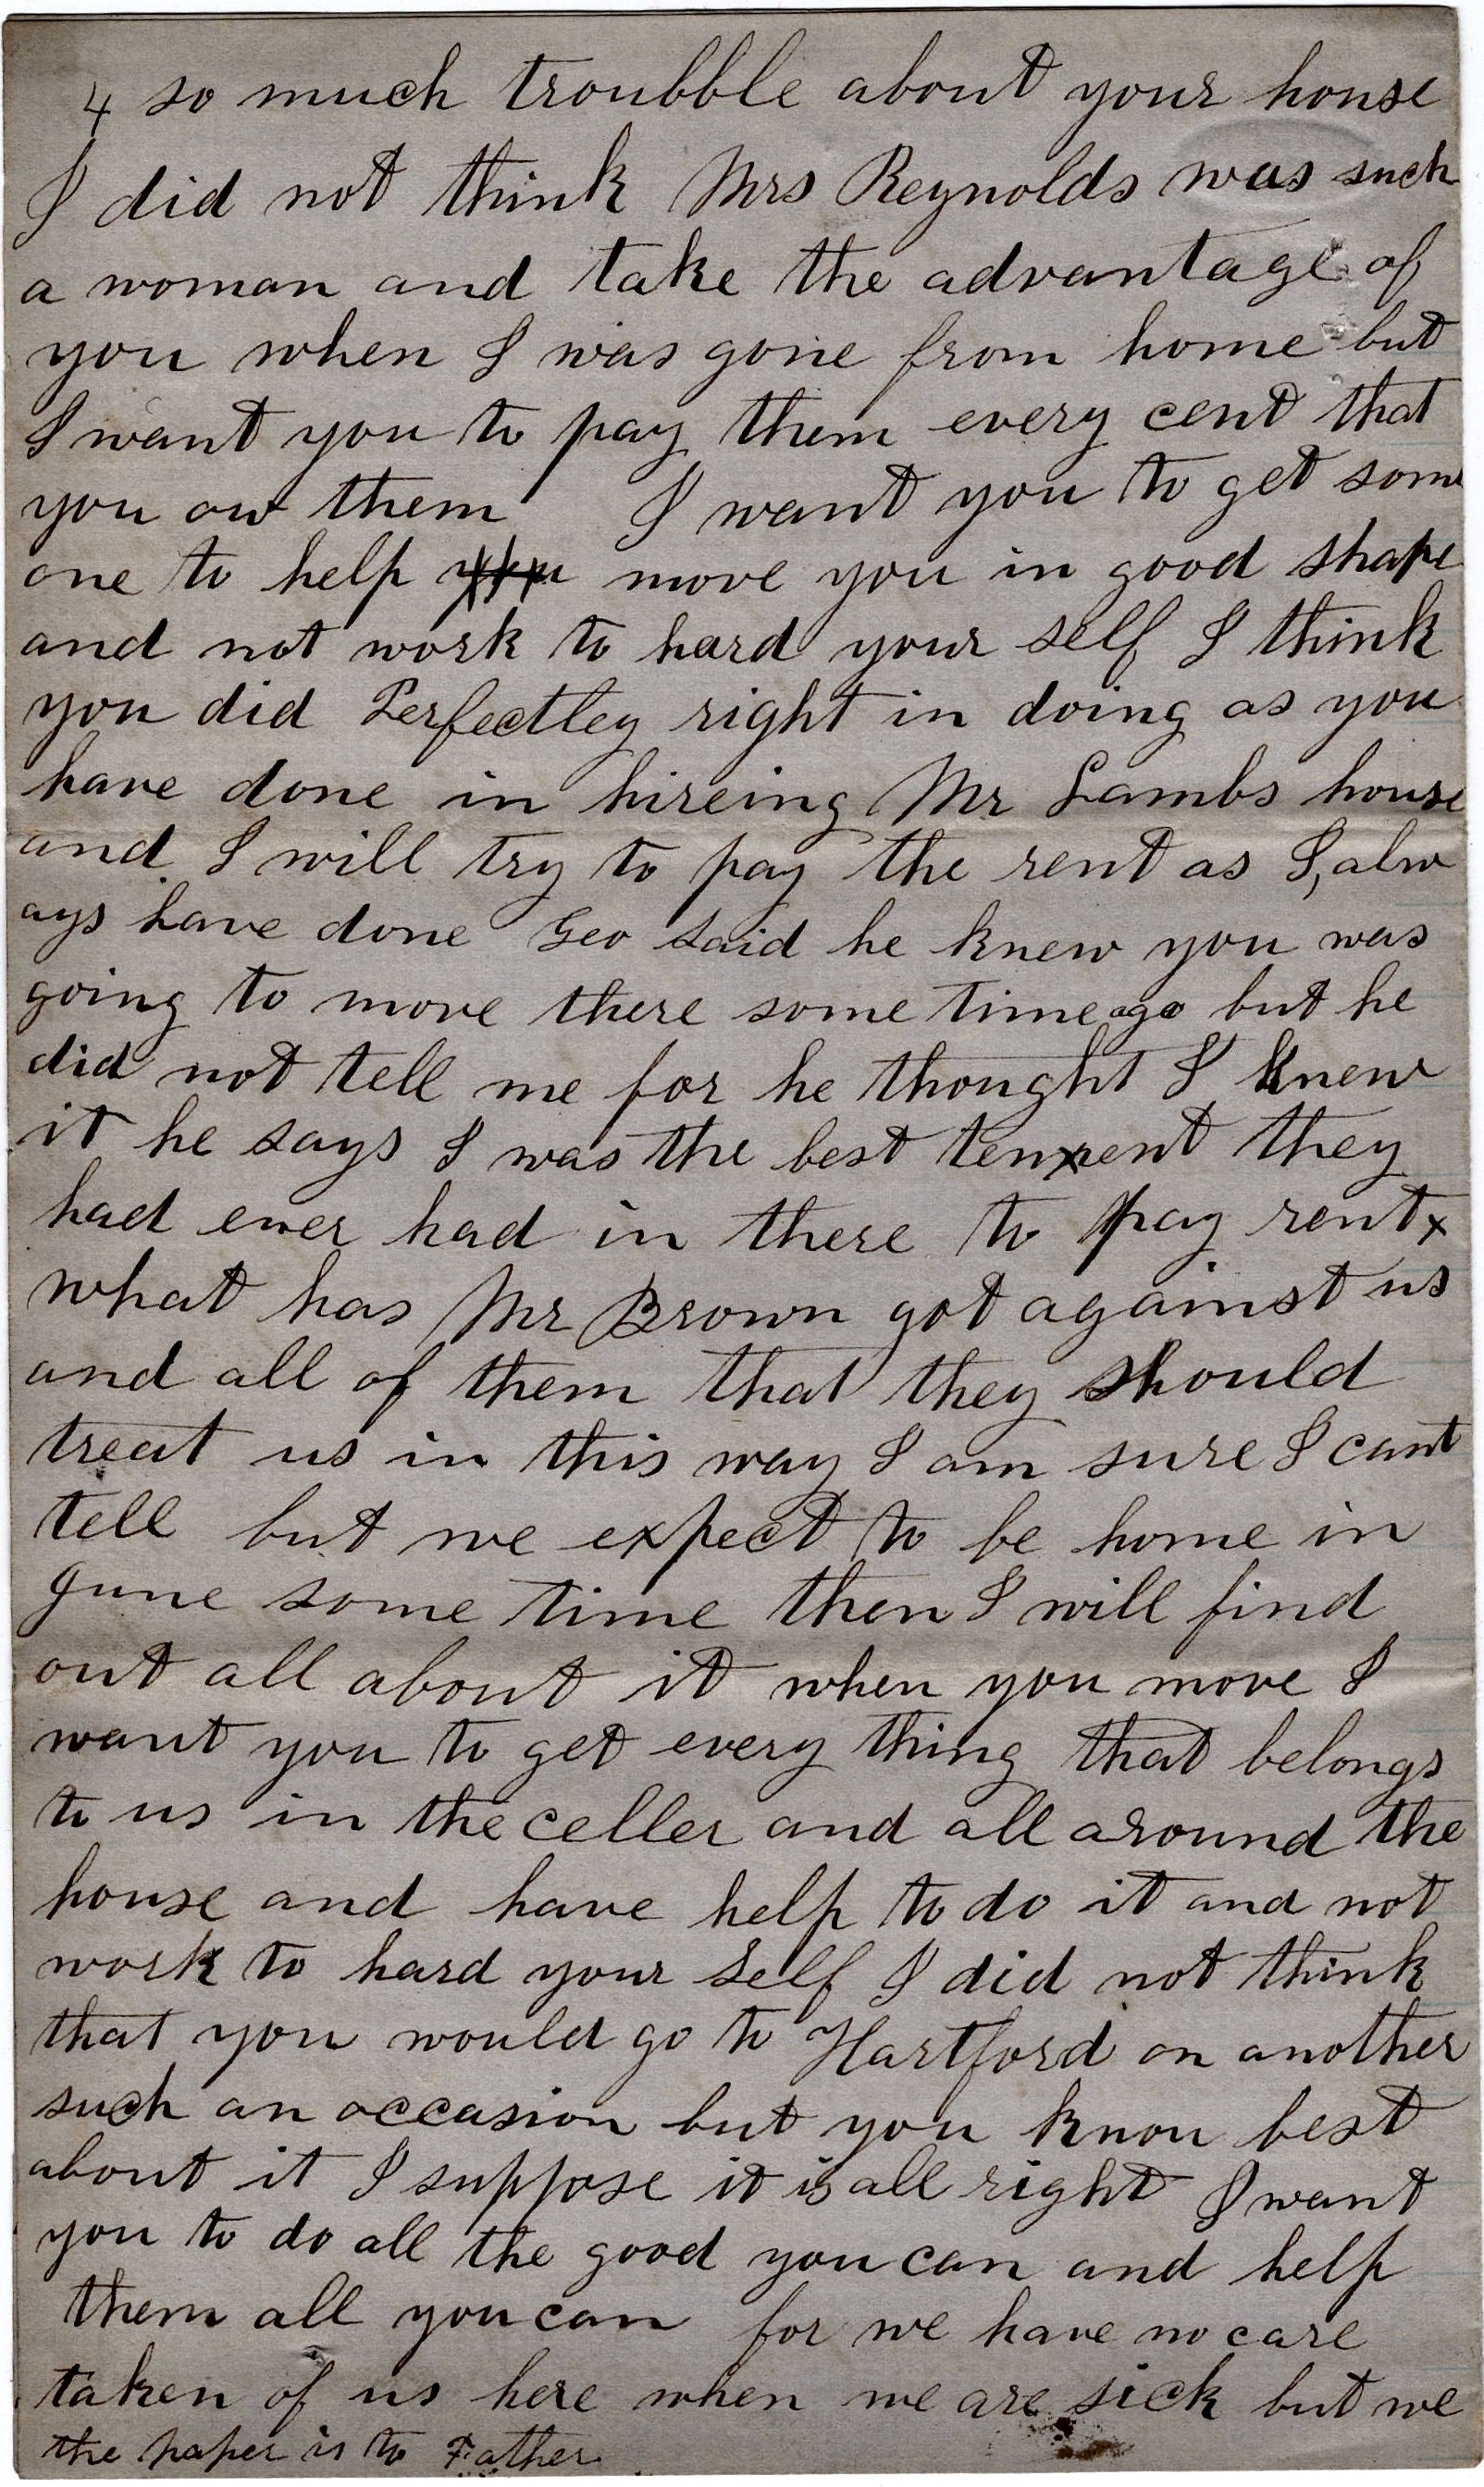 4 so much troubble about your house
I did not think Mrs Reynolds was such
a woman and take the advantage of
you when I was gone from home but
I want you to pay them every cent that
you ow them I want you to get some
one to help you move you in good shape
and not work to hard your self I think
you did Perfectley right in doing as you
have done in hireing Mr Lambs house
and I will try to pay the rent as I, alw
ays have done Geo said he knew you was
going to move there some time ago but he
did not tell me for he thought I knew
it he says I was the best tenxent they
had ever had in there to pay rent x
what has Mr Brown got against us
and all of them that they should
treat us in this way I am sure I cant
tell but we expect to be home in
June some time then I will find
out all about it when you move I
want you to get every thing that belongs
to us in the celler and all around the
house and have help to do it and not
work to hard your self I did not think
that you would go to Hartford on another
such an occasion but you know best
about it I suppose it is all right I want
you to do all the good you can and help
them all you can for we have no care
taken of us here when we are sick but we
the paper is to Father